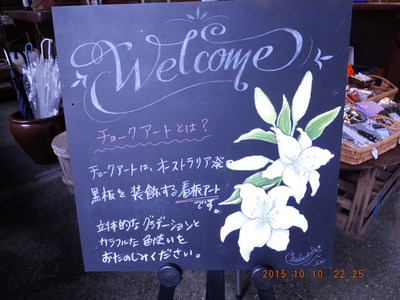 Welcome
チョークアートとは?
チョークアートは、オーストラリア発
黒板を装飾する看板アート
です。
立体的なグラデーションと
カラフルな色使いを
おたのしみください。
2015 10 10 22 25